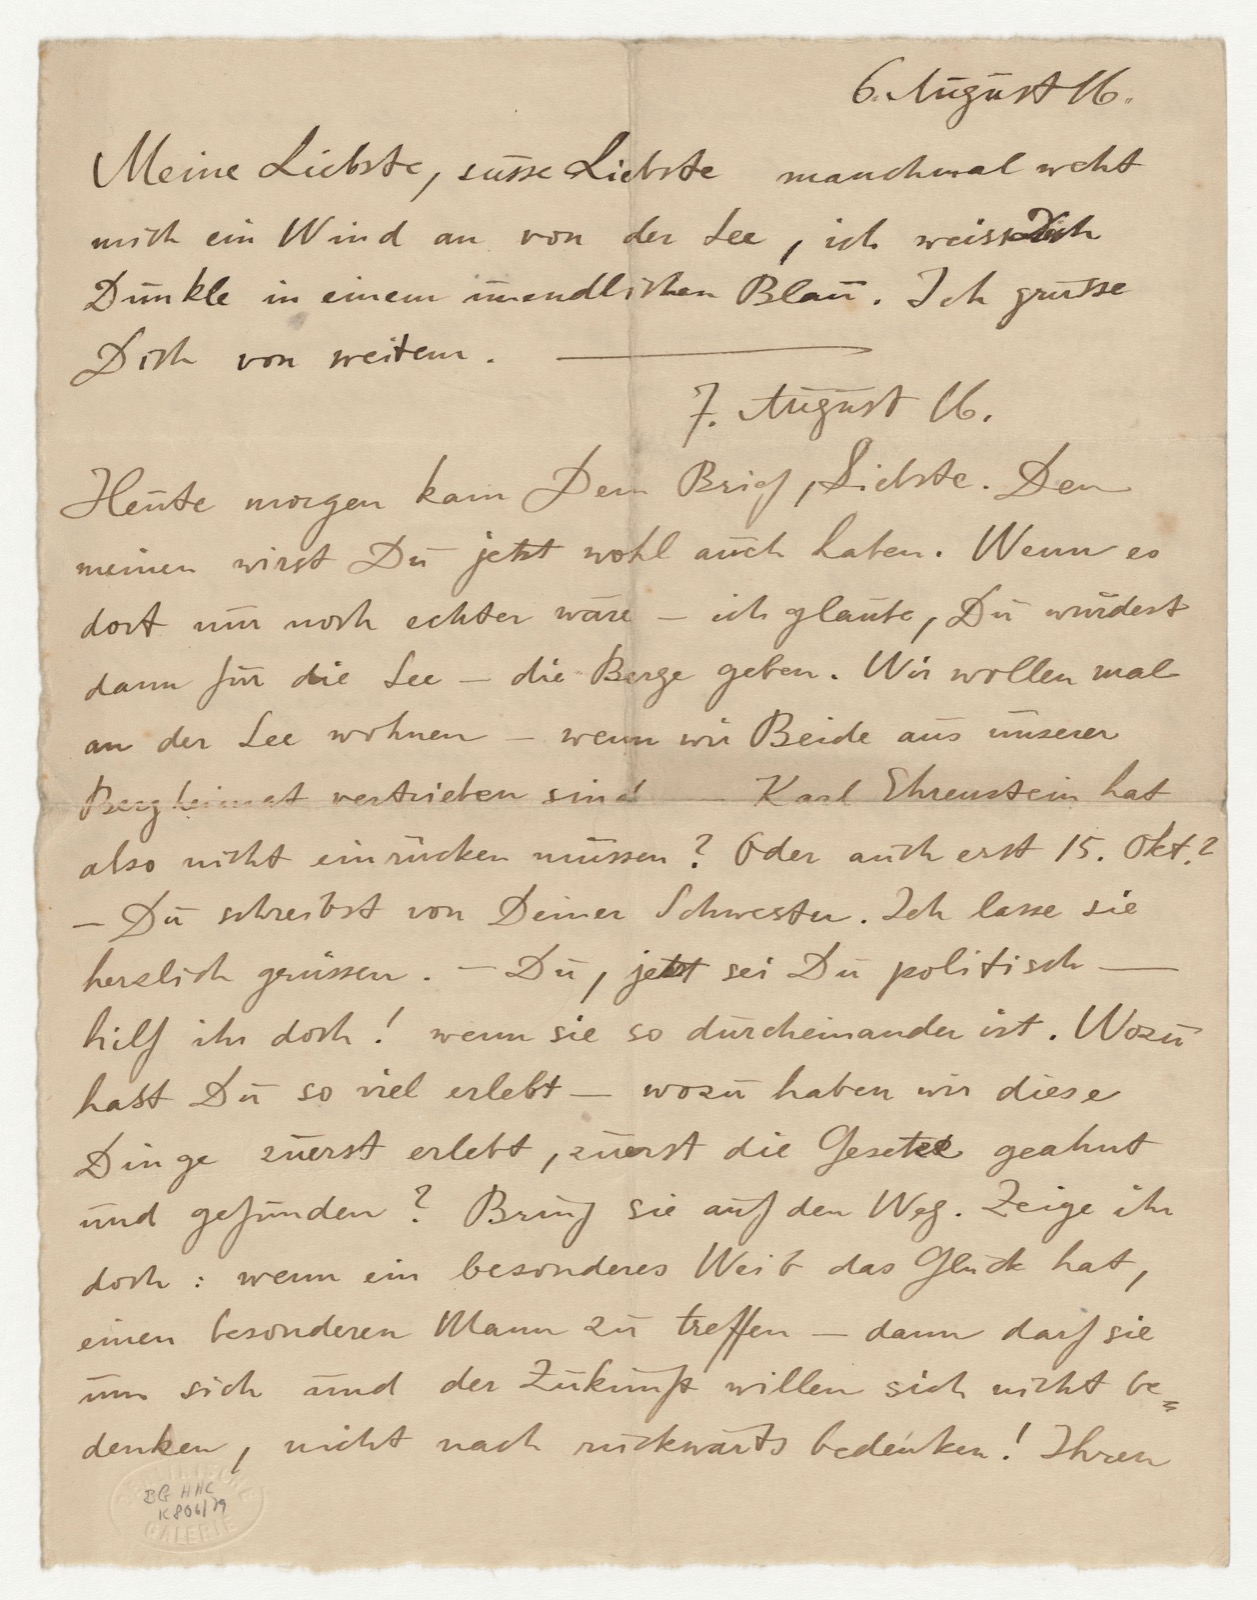 6. August 16.
Meine Liebste, süsse Liebste manchmal weht
mich ein Wind an von der See, ich weiss Dich
Dunkle in einem unendlichen Blau. Ich grüsse
Dich von weitem. —
7. August 16.
Heute morgen kam Dein Brief, Liebste. Den
meinen wirst Du jetzt wohl auch haben. Wenn es
dort nur noch echter wäre – ich glaube, Du würdest
dann für die See – die Berge geben. Wir wollen mal
an der See wohnen – wenn wir Beide aus unserer
Bergheimat vertrieben sind — Karl Ehrenstein hat
also nicht einrücken müssen? Oder auch erst 15. Okt.?
– Du schreibst von Deiner Schwester. Ich lasse sie
herzlich grüssen. – Du, jetzt sei Du politisch —
hilf ihr doch! wenn sie so durcheinander ist. Wozu
hast Du so viel erlebt – wozu haben wir diese
Dinge zuerst erlebt, zuerst die Gesetze geahnt
und gefunden? Bring sie auf den Weg. Zeige ihr
doch: wenn ein besonderes Weib das Glück hat,
einen besonderen Mann zu treffen – dann darf sie
um sich und der Zukunft willen sich nicht be=
denken, nicht nach rückwärts bedenken! Ihren
BG HHC
K 806/79
GALERIE